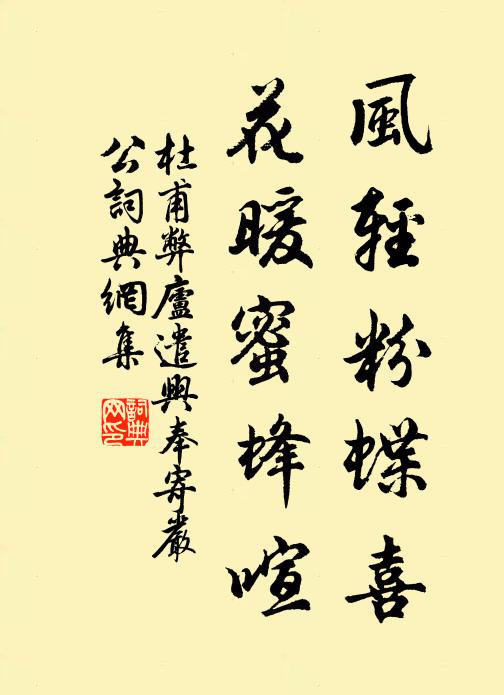 風輕粉蝶喜
花暖蜜蜂喧
杜甫弊廬遣興奉寄嚴
公詞典網集
詞典
网印